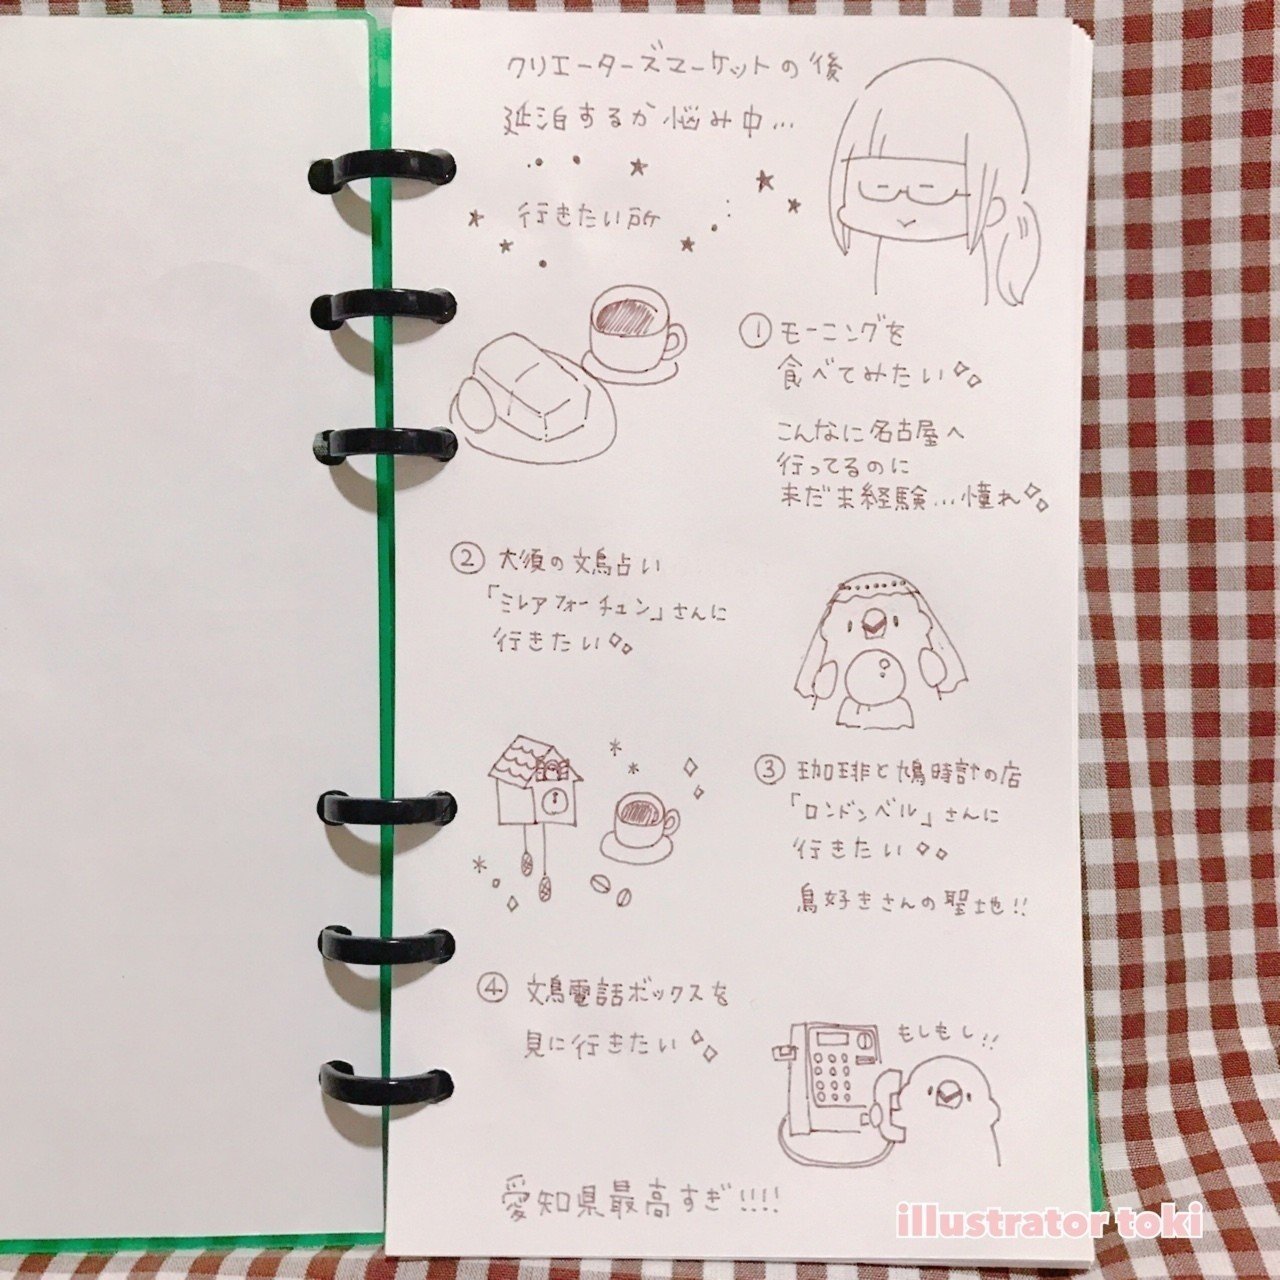 クリエーターズマーケットの後
延泊するか悩み中...
行きたい所
① モーニングを
食べてみたい
こんなに名古屋へ
行ってるのに
まだ未経験...憧れ
② 大須の文鳥占い
「ミレアフォーチュン」さんに
行きたい
③ 珈琲と鳩時計の店
「ロンドンベル」さんに
行きたい
鳥好きさんの聖地!!
④ 文鳥電話ボックスを
見に行きたい
もしもし!!
愛知県最高すぎ!!!!
illustrator toki